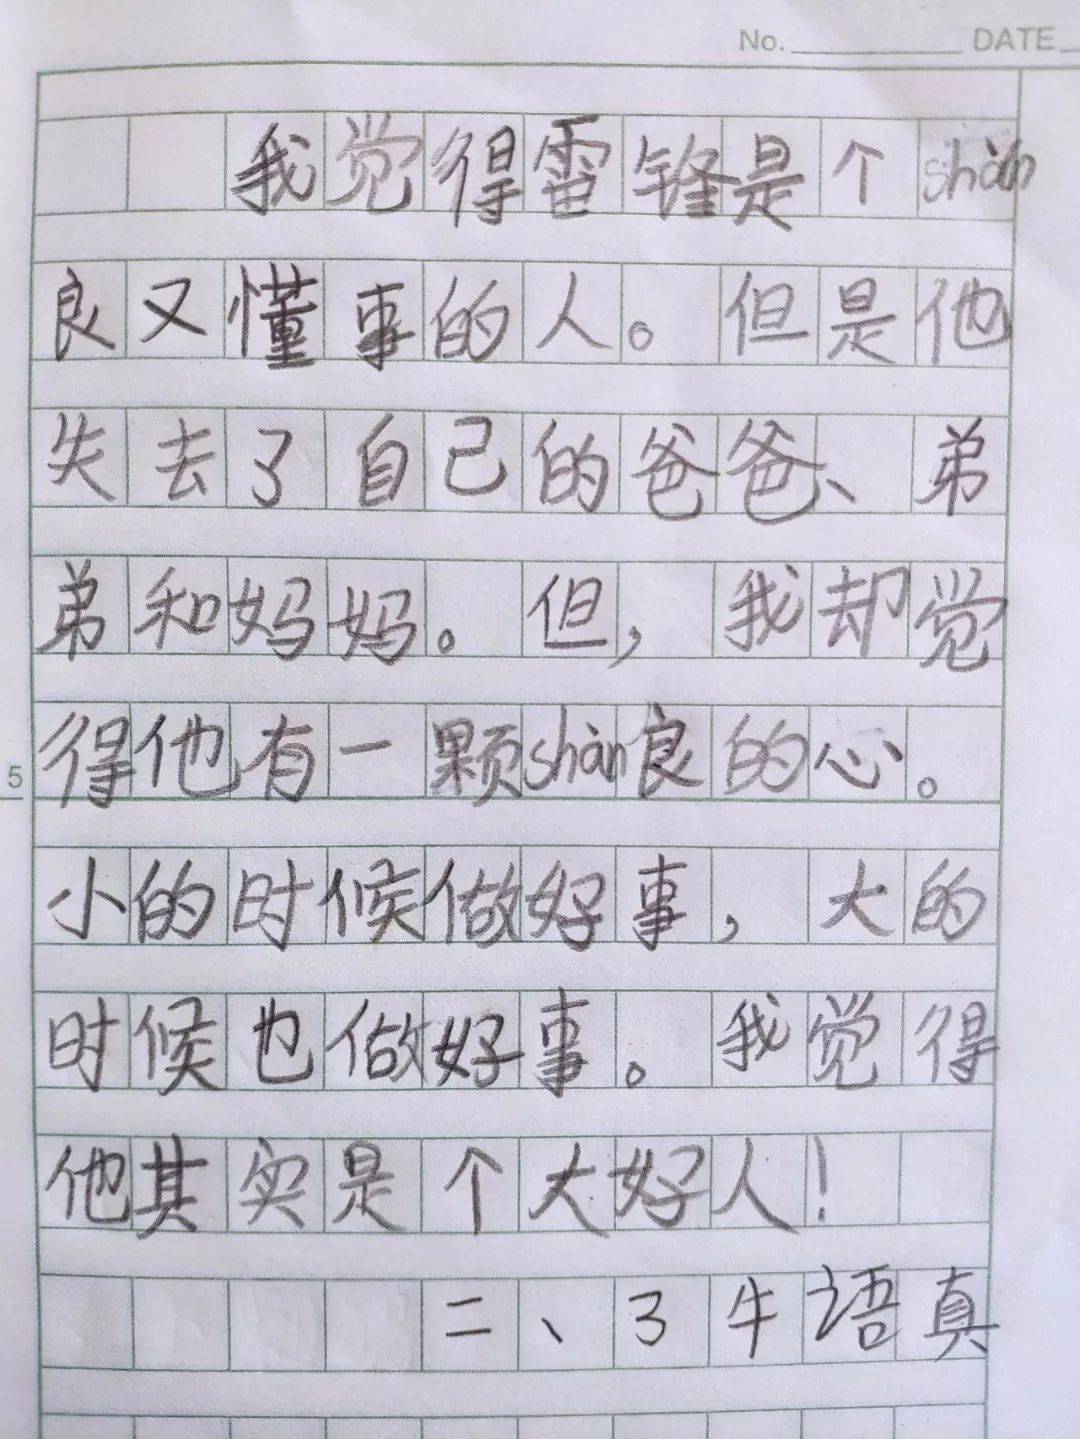 No. DATE
我觉得雷锋是个shàn
良又懂事的人。但是他
失去了自己的爸爸、弟
弟和妈妈。但,我却觉
得他有一颗shàn良的心。
5
小的时候做好事,大的
时候也做好事。我觉得
他其实是个大好人!
二、3牛语真